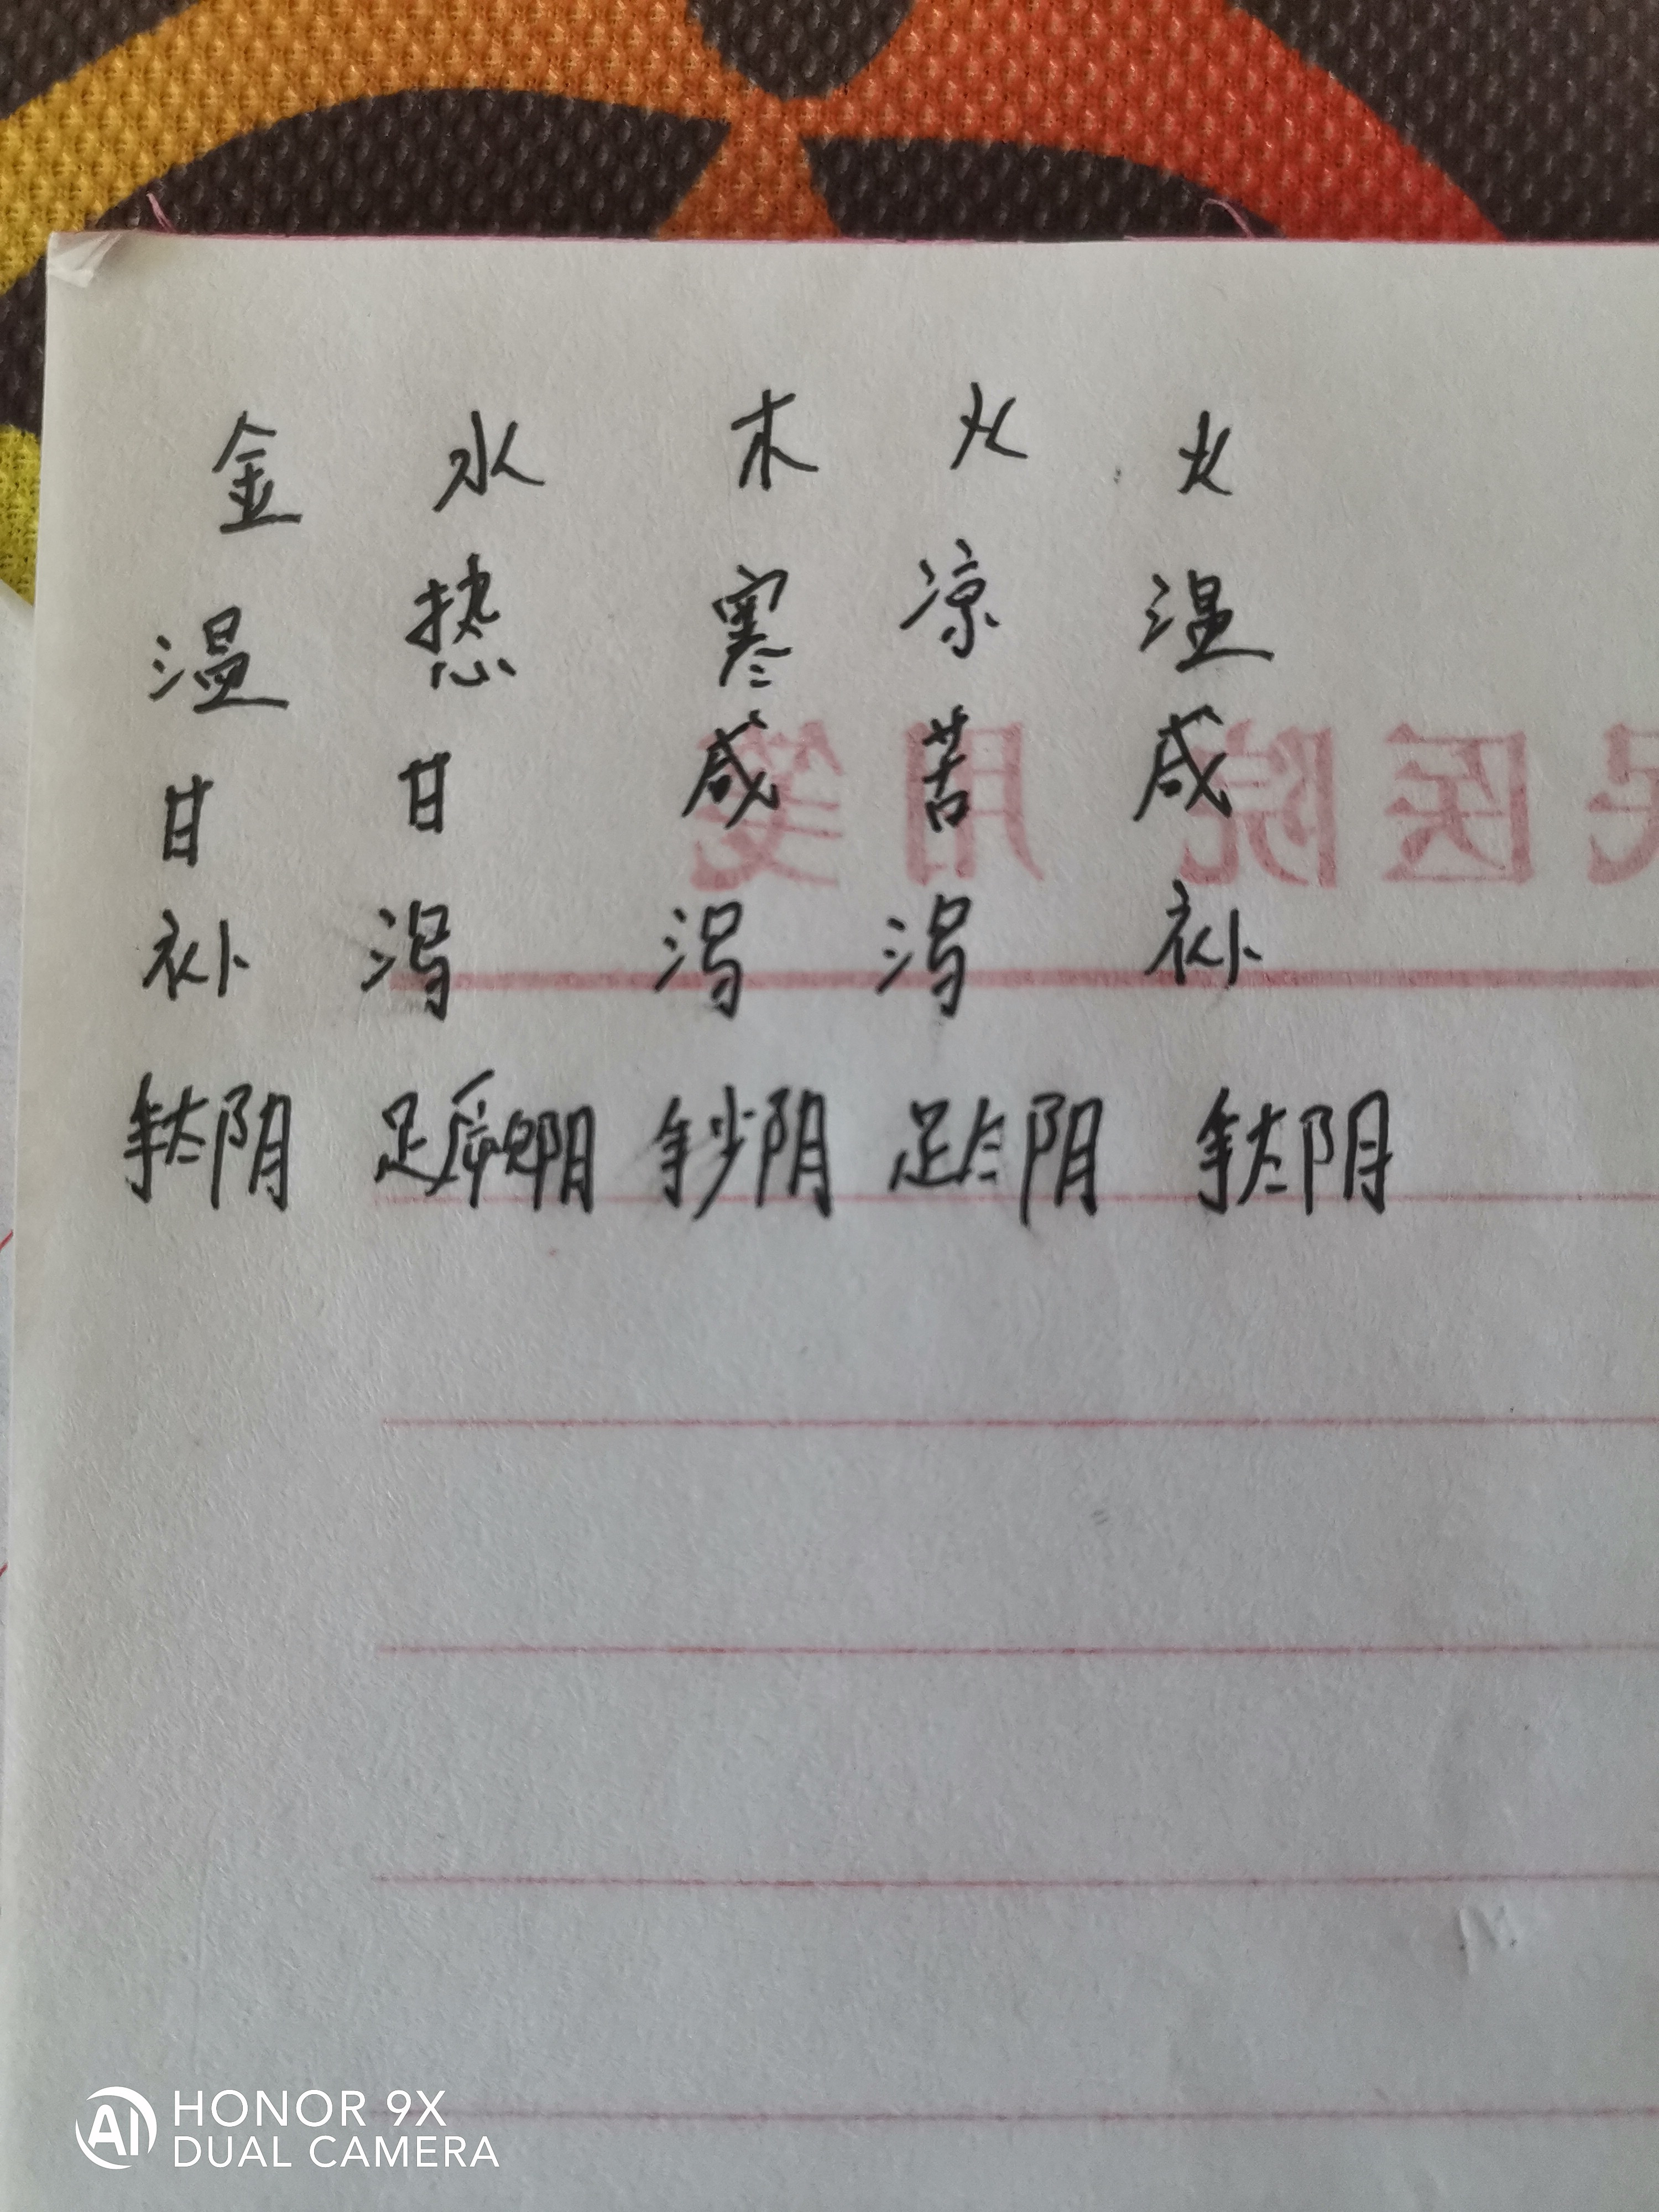 金 水 木 火 火
温 热 寒 凉 温
甘 甘 咸 苦 咸
补 泻 泻 泻 补
手太阴 足厥阴 手少阴 足太阴 手太阴
笺用院医民
HONOR 9X
DUAL CAMERA